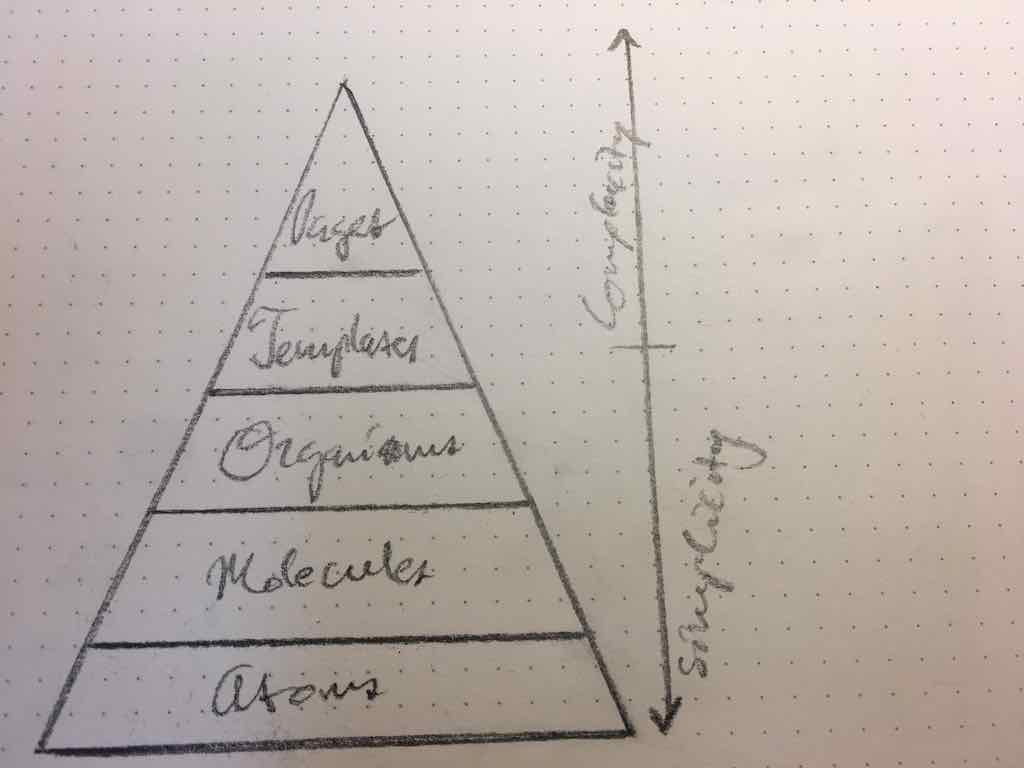 Pages
Templates
Organisms
Molecules
Atoms
Complexity
Simplicity